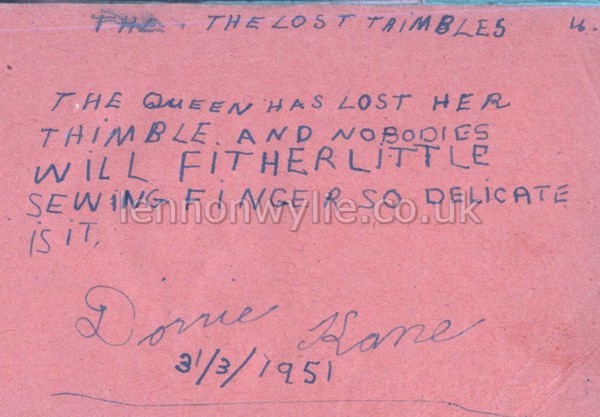 THE . THE LOST TAIMBLES 16.
THE QUEEN HAS LOST HER
THIMBLE. AND NOBODIES
WILL FITHERLITTLE
SEWING FINGER SO DELICATE
lennonwylie.co.uk
IS IT.
Dorrie Kane
31/3/1951